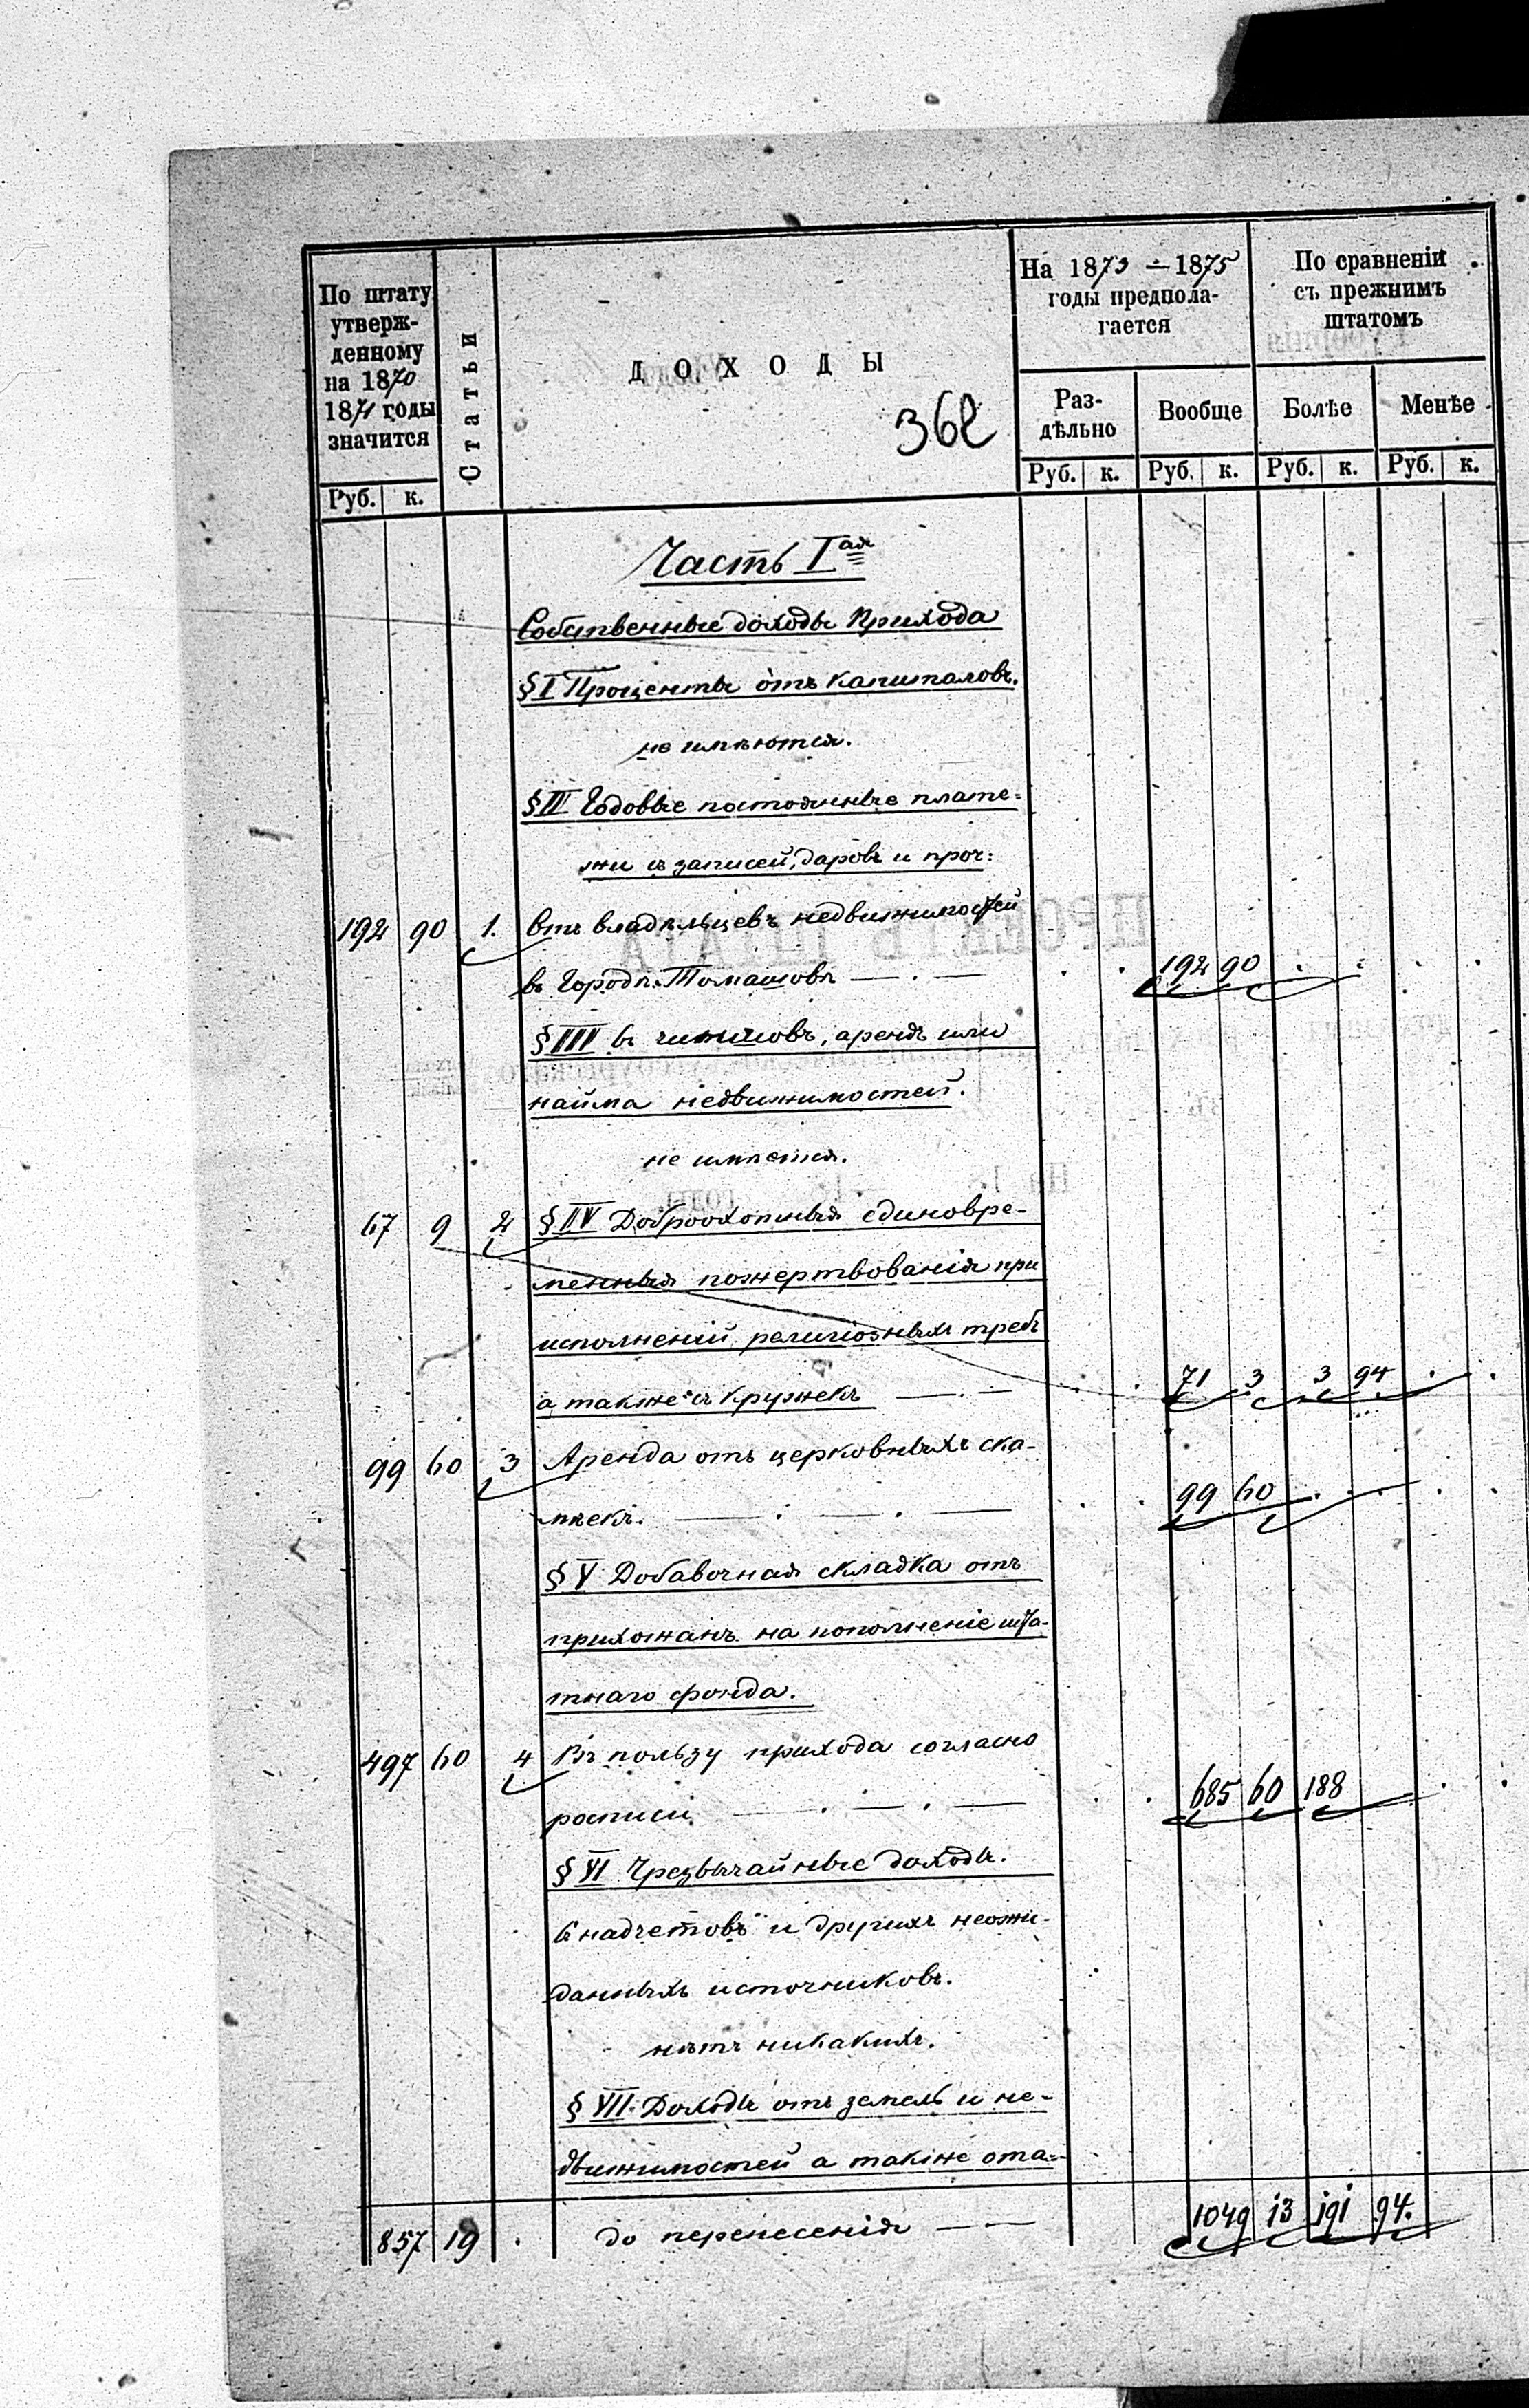 По штату утверж-
денному
на 1870
1871 годы
значится
Руб. к.
Статьи
ДОХОДЫ
362
На 1873 — 1875
годы предпола-
гается
Раз-
дѣльно
Руб. к.
Вообще
Руб. к.
По сравненіи
съ прежнимъ
штатомъ
Болѣе
Руб. к.
Менѣе
Руб. к.
Часть I ая
Собственные доходы Прихода
§ I Проценты отъ капиталовъ.
не имѣются.
§ II Годовые постоянные плате=
жи съ записей, даровъ и проч:
192 90 1. Отъ владѣльцевъ недвижимостей
въ Городѣ Томашовѣ — . — 192 90
§ III съ чиншовъ, арендъ или
найма недвижимостей.
не имѣется.
67 9 2 § IV Доброохотныя единовре-
менныя пожертвованія при
исполненіи религіозныхъ требъ
а также съ кружекъ — . — 71 3 3 94
99 60 3 Аренда отъ церковныхъ ска-
мѣекъ. — . — . — 99 60
§ V Добавочная складка отъ
прихожанъ на пополненіе шта-
тнаго фонда.
497 60 4 Въ пользу прихода согласно
росписи — . — . — 685 60 188
§ VI Чрезвычайные доходы.
Съ надчетовъ и другихъ неожи-
данныхъ источниковъ.
нѣтъ никакихъ.
§ VII. Доходы отъ земель и не-
движимостей а также ота=
857 19 до перенесенія — — 1049 13 191 94.